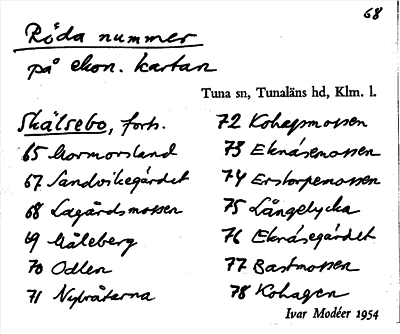 68
Röda nummer
på ekon. kartan
Tuna sn, Tunaläns hd, Klm. l.
Skälsebo, forts.
65 Mormorsland
67 Sandvikegärdet
68 Lagårdsmossen
69 Måleberg
70 Odlen
71 Nybråtarna
72 Kohagsmossen
73 Eknäsemossen
74 Erstorpemossen
75 Långelycka
76 Eknäsegärdet
77 Bastmossen
78 Kohagen
Ivar Modéer 1954